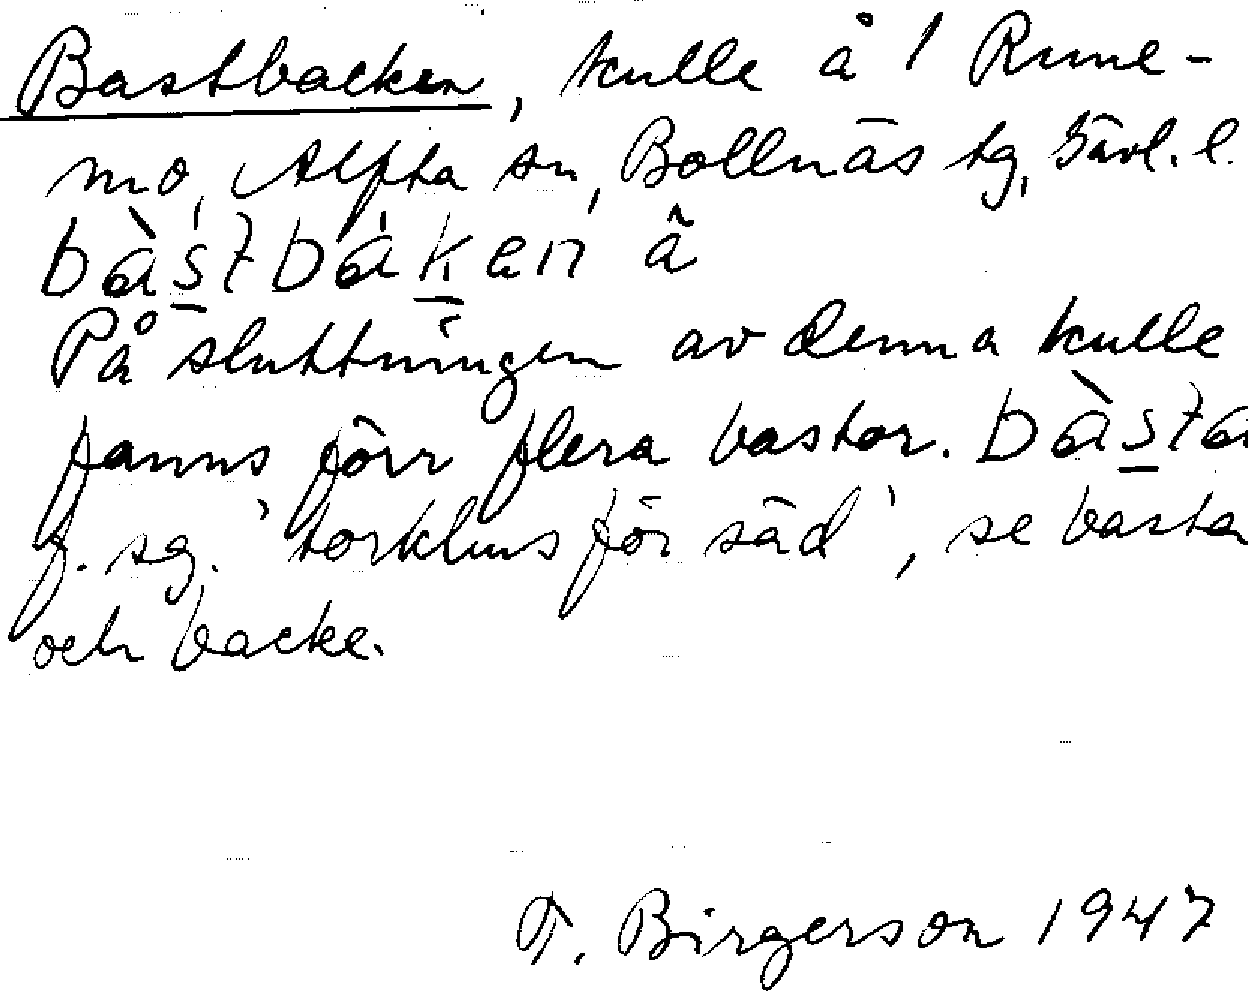 Bastbacken, kulle å 1 Rune-
mo, Alfta sn, Bollnäs tg, Gävl. l.
bàstbáken ã
På sluttningen av denna kulle
fanns förr flera bastor. bàsta
f. sg. 'torkhus för säd', se basta
och backe.
T. Birgerson 1947